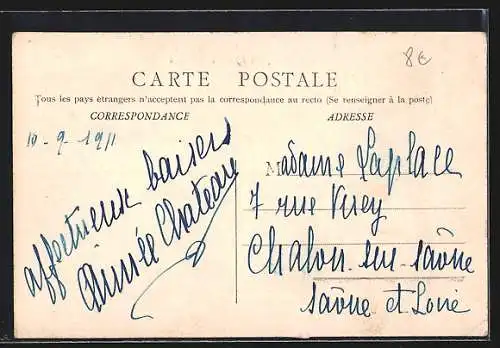 8€
CARTE POSTALE
Tous les pays étrangers n'acceptent pas la correspondance au recto (Se renseigner à la poste)
CORRESPONDANCE
ADRESSE
10-9-1911
affectueux baisers
Aimée Chateau
Madame Laplace
7 rue Virey
Chalon-sur-Saône
Saône et Loire